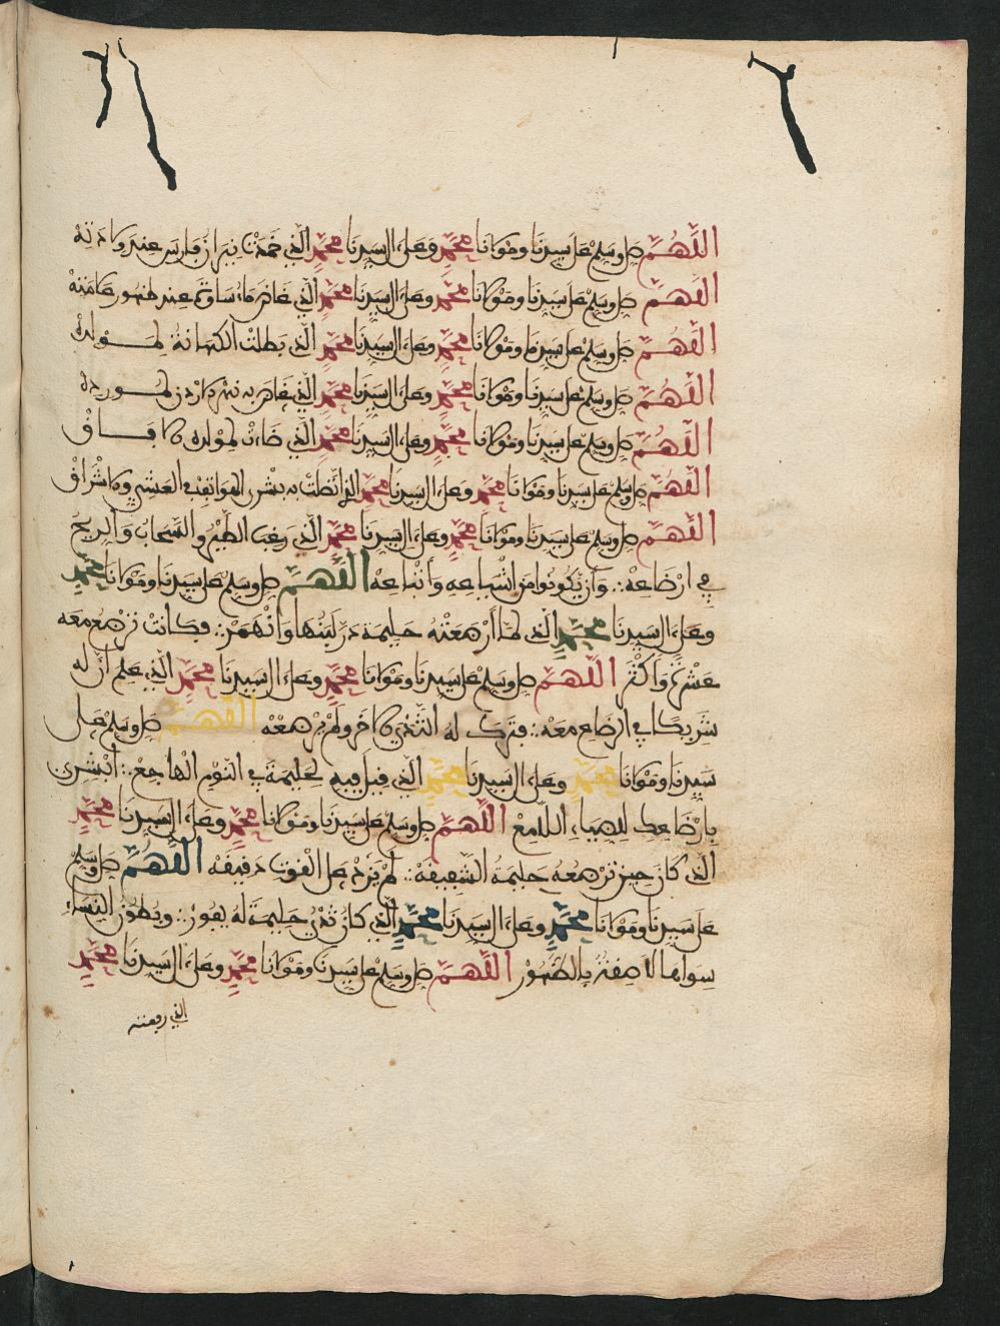 اللهم صل وسلم على سيدنا ومولانا محمد وعلى ءال سيدنا محمد الذي خمدت نيران فارس عند ولادته
اللهم صل وسلم على سيدنا ومولانا محمد وعلى ءال سيدنا محمد الذي غاض ماء ساوة عند ظهور علامته
اللهم صل وسلم على سيدنا ومولانا محمد وعلى ءال سيدنا محمد الذي بطلت الكهانة لمولده
اللهم صل وسلم على سيدنا ومولانا محمد وعلى ءال سيدنا محمد الذي غاض به نهر الاردن لوروده
اللهم صل وسلم على سيدنا ومولانا محمد وعلى ءال سيدنا محمد الذي ضاءت لمولده الافاق
اللهم صل وسلم على سيدنا ومولانا محمد وعلى ءال سيدنا محمد الذي اتصلت به بشرى الهواتف في العشي والاشراق
اللهم صل وسلم على سيدنا ومولانا محمد وعلى ءال سيدنا محمد الذي رغب الطير والسحاب والريح
في ارضاعه وأن يكونوا من اشياعه وأتباعه اللهم صل وسلم على سيدنا ومولانا محمد
وعلى ءال سيدنا محمد الذي لما أرضعته حليمة در لبنها وانهمر فكانت ترضع معه
عشرة وأكثر اللهم صل وسلم على سيدنا ومولانا محمد وعلى ءال سيدنا محمد الذي علم أن له
شريكا في ارضاع معه فترك له الثدي الاخر ولم يرضعه اللهم صل وسلم على
سيدنا ومولانا محمد وعلى ءال سيدنا محمد الذي قيل فيه لحليمة في النوم الهاجع ابشري
بارضاعك للضياء اللامع اللهم صل وسلم على سيدنا ومولانا محمد وعلى ءال سيدنا محمد
الذي كان حين ترضعه حليمة الشفيقة لم يزد على القوت دقيقة اللهم صل وسلم
على سيدنا ومولانا محمد وعلى ءال سيدنا محمد الذي كان ثدي حليمة له يفور وبطون النساء
سواها لاصقة بالظهور اللهم صل وسلم على سيدنا ومولانا محمد وعلى ءال سيدنا محمد
الذي رفعته